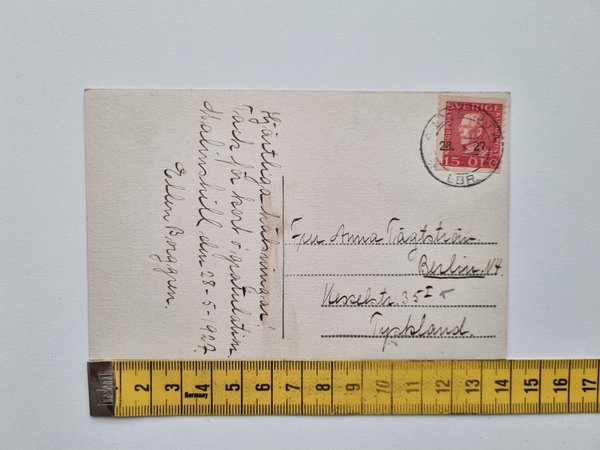 Hjärtliga hälsningar!
Tack för kort o gratulation.
Malmshill den 28-5-927.
Ellen Bryggen
SVERIGE
15 ÖRE
28. 5. 27.
LBR.
Fru Anna Tägtström
Berlin. N4.
Kesselstr. 35 I
Tyskland.
2 3 4 5 6 7 8 9 10 11 12 13 14 15 16 17
Germany